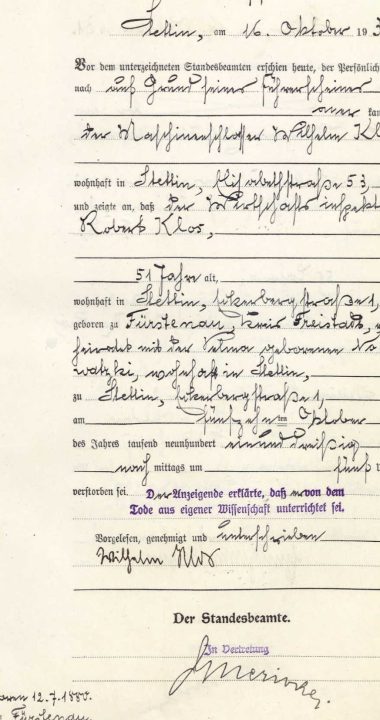 Stettin, am 16. Oktober 193
Vor dem unterzeichneten Standesbeamten erschien heute, der Persönlich
nach auf Grund seines Führerscheines
aner kan
der Maschinenschlosser Wilhelm Kl
wohnhaft in Stettin, Elisabethstraße 53
und zeigte an, daß der Wirtschaftsinspekt
Robert Klos,
51 Jahre alt,
wohnhaft in Stettin, straße 1,
geboren zu Fürstenau, Kreis Freistadt,
heiratet mit der Selma geborenen No
watzki, wohnhaft in Stettin,
zu Stettin, straße 1,
am fünfzehnten Oktober
des Jahres tausend neunhundert einunddreißig
nach mittags um fünf
verstorben sei. Der Anzeigende erklärte, daß er von dem
Tode aus eigener Wissenschaft unterrichtet sei.
Vorgelesen, genehmigt und unterschrieben
Wilhelm Klos
Der Standesbeamte.
In Vertretung
oren 12.7.1880.
Fürstenau